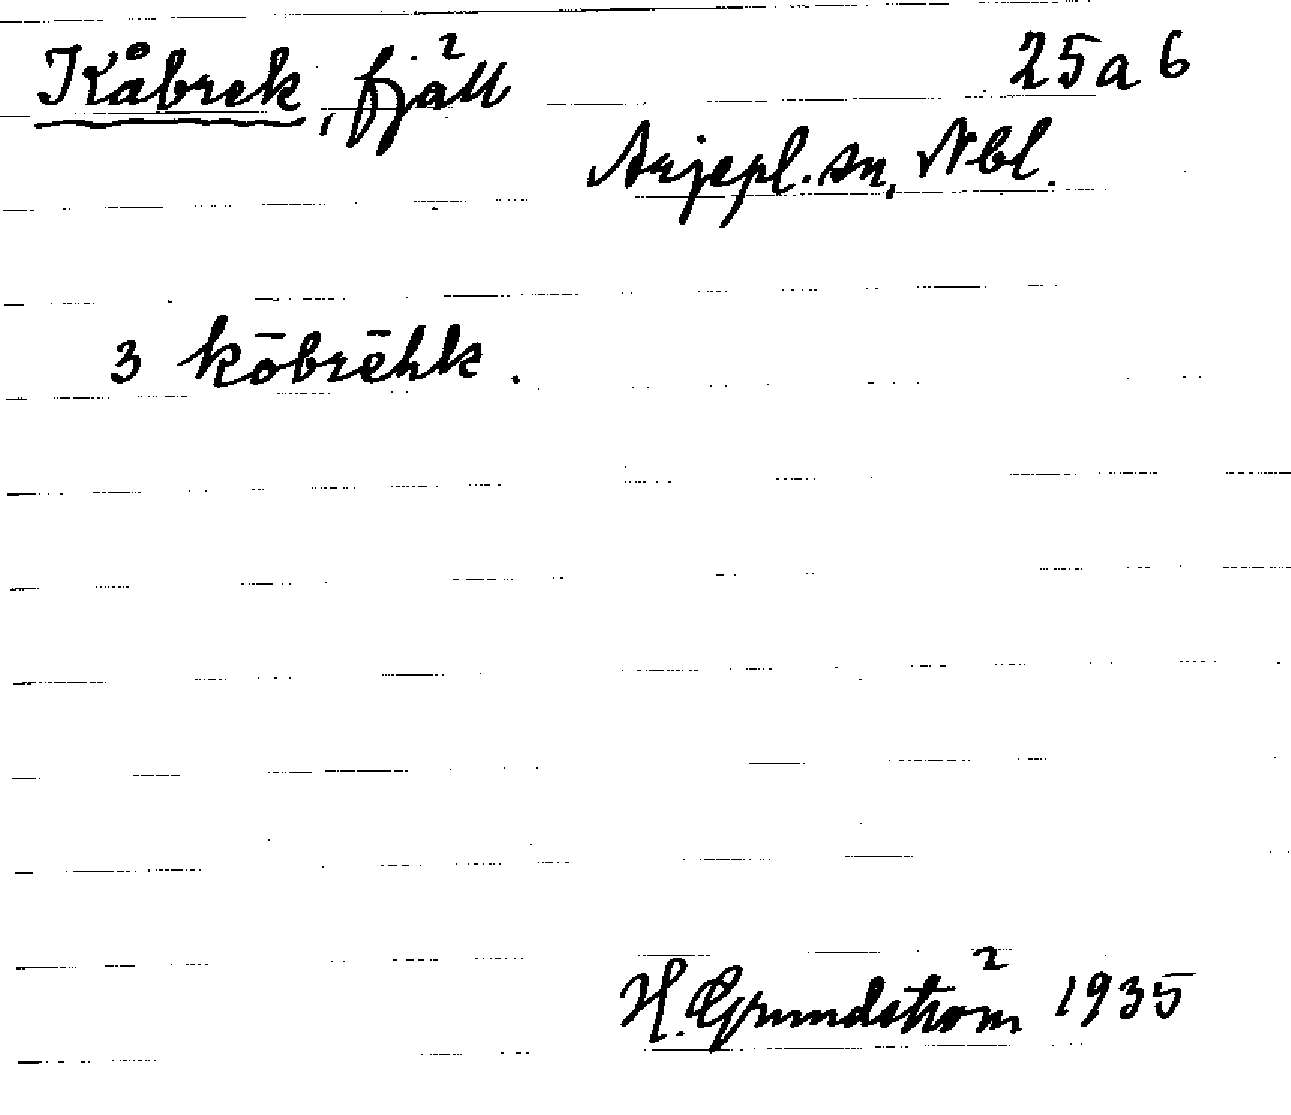 Kåbrek, fjäll 25 a 6
Arjepl. sn, Nbl.
3 kōbrēhk.
H. Grundström 1935